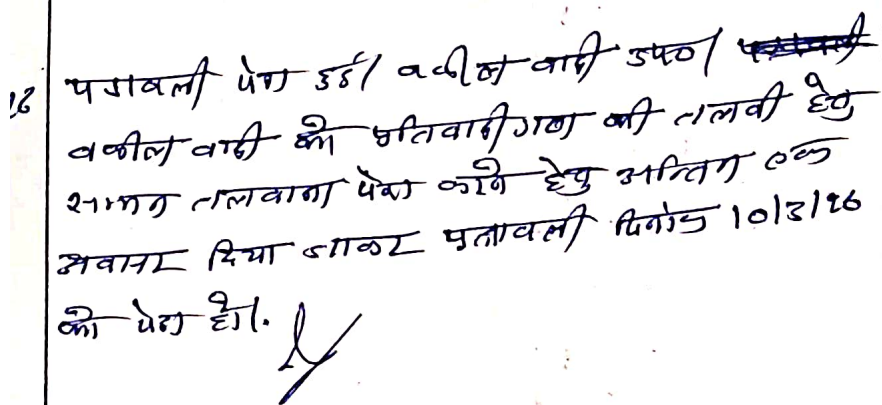 पत्रावली पेश हुई। वकील वादी उप०।
26 वकील वादी को प्रतिवादीगण की तलबी हेतु
सम्मन तलवाना पेश करने हेतु अन्तिम एक
अवासर दिया जाकर पत्रावली दिनांक 10/3/26
को पेश हो।.